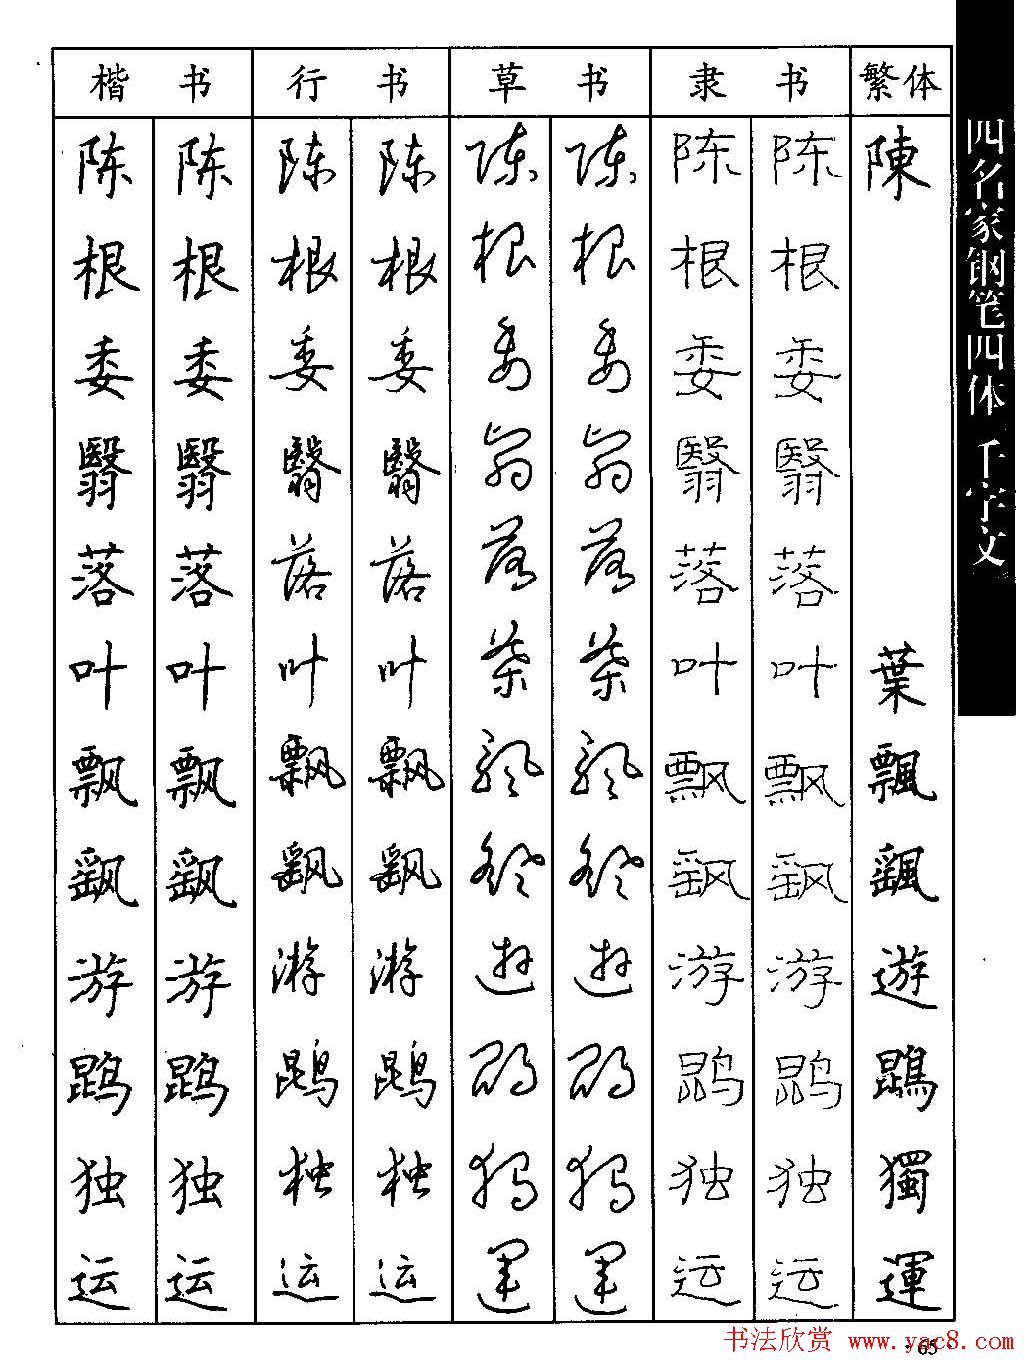 楷书 行书 草书 隶书 繁体
陈 陈 陈 陈 陈 陈 陈 陈 陳
根 根 根 根 根 根 根 根
委 委 委 委 委 委 委 委
翳 翳 翳 翳 翳 翳 翳 翳
落 落 落 落 落 落 落 落
叶 叶 叶 叶 葉 葉 叶 叶 葉
飘 飘 飘 飘 飘 飘 飘 飘 飄
飖 飖 飖 飖 飖 飖 飖 飖 颻
游 游 游 游 遊 遊 游 游 遊
鹍 鹍 鹍 鹍 鹍 鹍 鹍 鹍 鵾
独 独 独 独 獨 獨 独 独 獨
运 运 运 运 運 運 运 运 運
四名家钢笔四体 千字文
书法欣赏 www.yac8.com
·65·